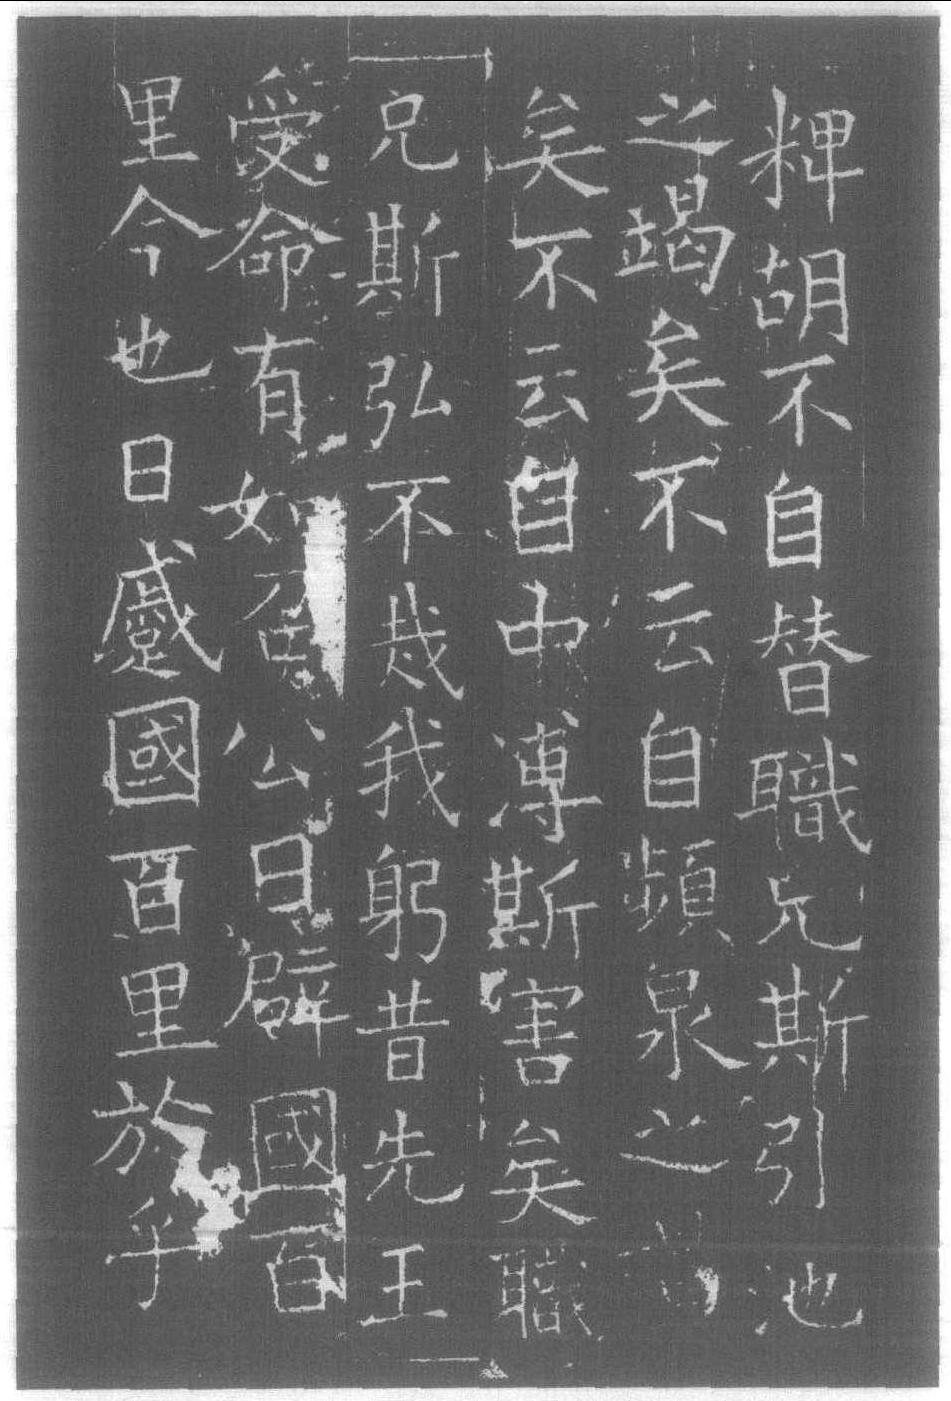 粺胡不自替職兄斯引池
之竭矣不云自頻泉之竭
矣不云自中溥斯害矣職
兄斯弘不烖我躬昔先王
受命有如召公日辟國百
里今也日蹙國百里於乎